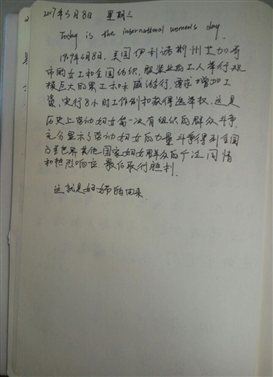 2017年3月8日 星期三
Today is the international women's day.
1909年3月8日,美国伊利诺斯州芝加哥
市的女工和全国纺织,服装业的工人举行规
模巨大的罢工和示威游行,要求增加工
资,实行8小时工作制和获得选举权,这是
历史上劳动妇女第一次有组织的群众斗争
充分显示了劳动妇女的力量,斗争得到全国
乃至世界其他国家妇女群众的广泛同情
和热烈响应,最后取得胜利.
这就是妇女节的由来.